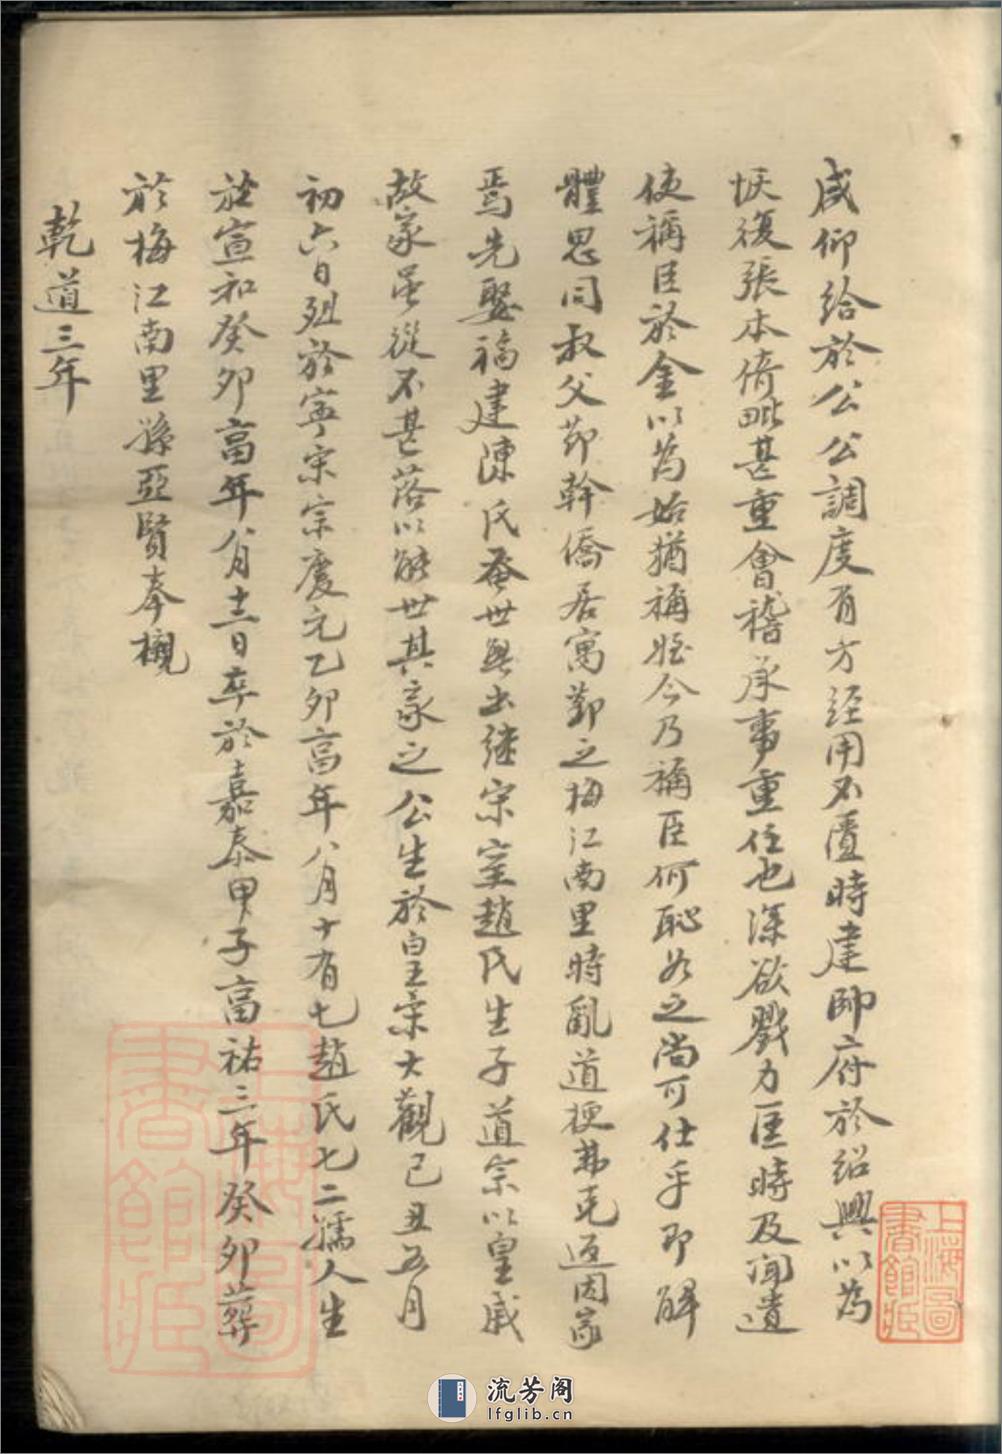 咸仰給於公公調度有方經用不匱時建帥府於紹興以為
恢復張本倚毗甚重會稽承事重任也深欲戮力匡時及聞遺
使稱臣於金以為始猶稱姪今乃稱臣何恥如之尚可仕乎即解
體思同叔父節幹僑居寓鄞之梅江南里時亂道梗弗克返因家
焉先娶福建陳氏蚤世無出繼宗室趙氏生子道宗以皇戚
故家虽從不甚落以能世其家之公生於皇宗大觀己丑五月
初六日殂於寧宗宗慶元乙卯高年八月十有七趙氏七二孺人生
於宣和癸卯高年八月十三日卒於嘉泰甲子富祐三年癸卯葬
於梅江南里孫亞賢奉櫬
乾道三年
上海圖書館藏
上海圖書館藏
流芳阁
lfglib.cn